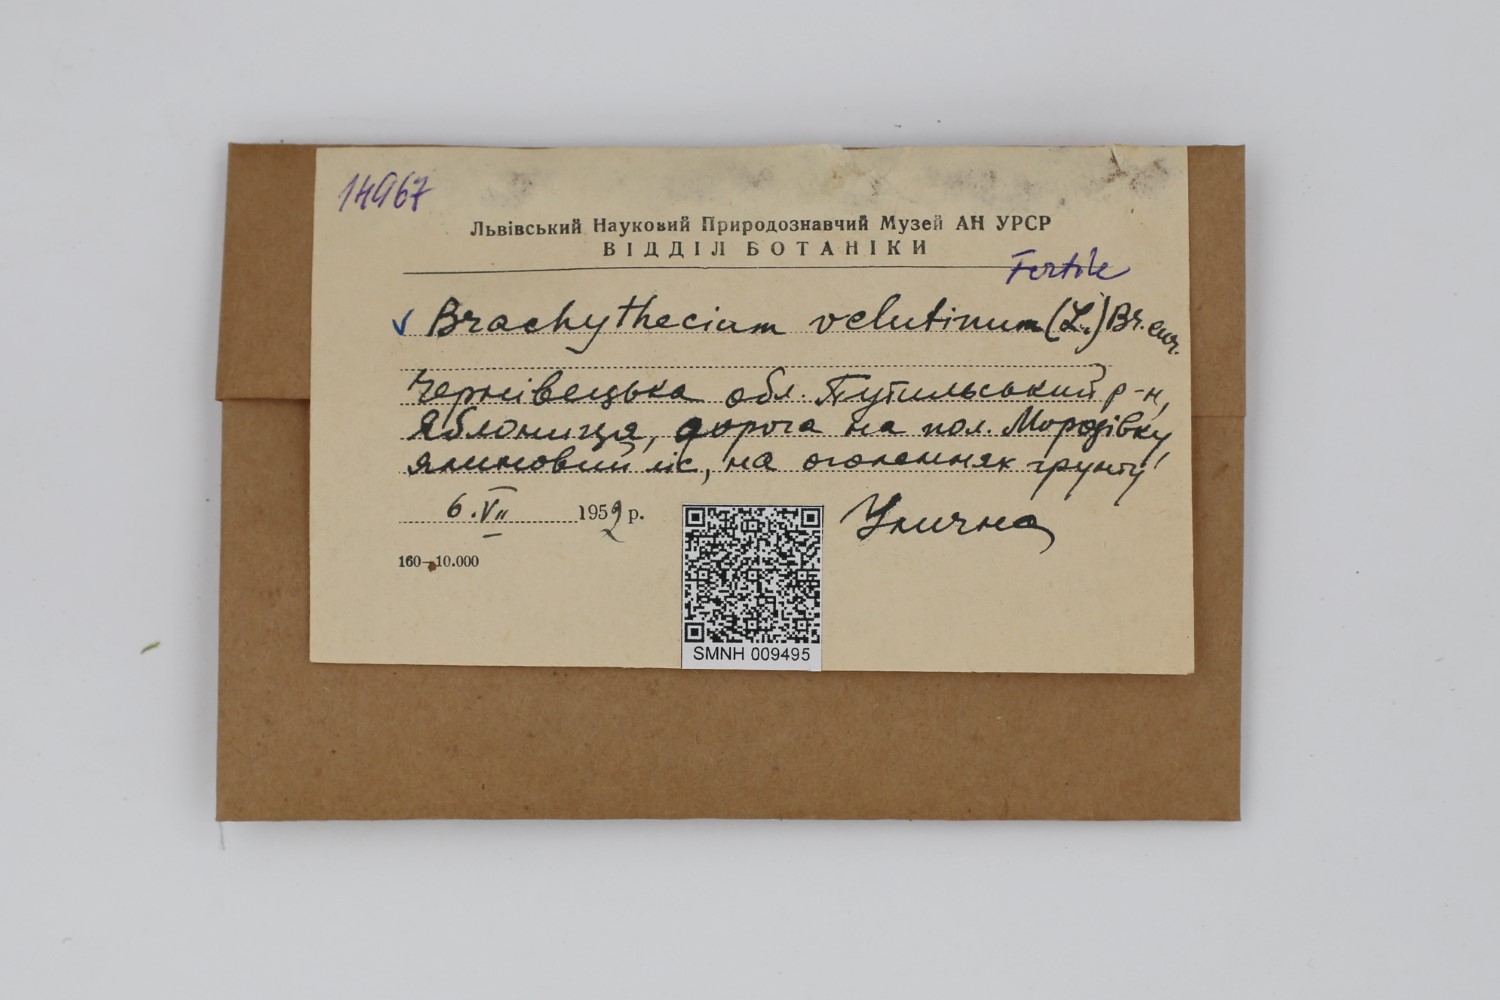 14967
Львівський Науковий Природознавчий Музей АН УРСР
ВІДДІЛ БОТАНІКИ
Fertile
✓ Brachythecium velutinum (L.) Br. eur.
Чернівецька обл. Путильський р-н,
Яблониця, дорога на пол.
ялиновий ліс, на оголеннях грунту
6.VII 1952 р.
Улична
160—10.000
SMNH 009495